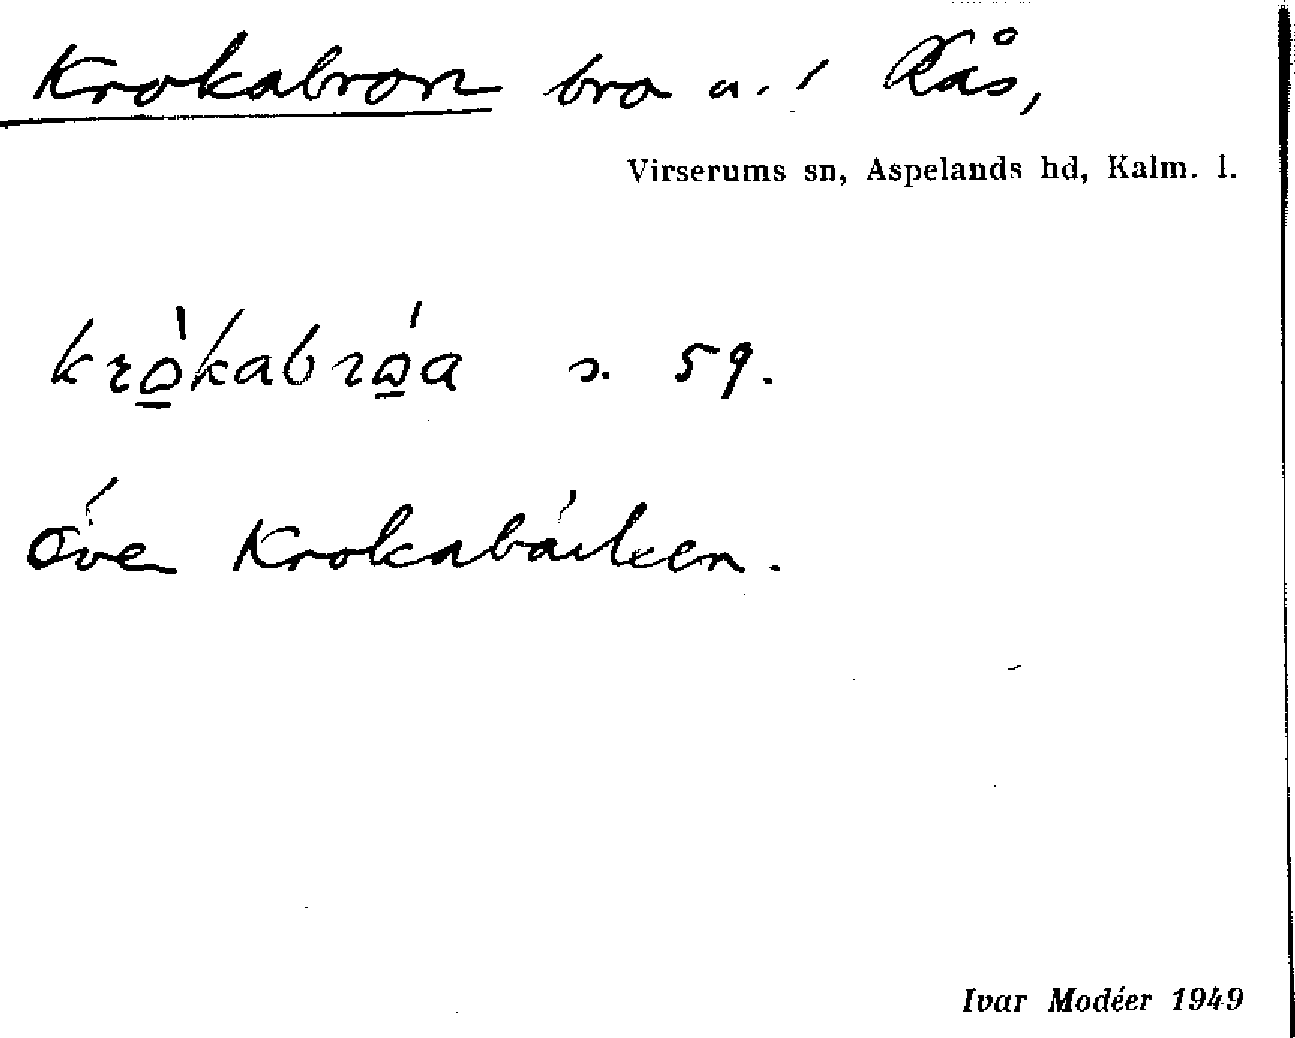 Krokabron bro u. / Rås,
Virserums sn, Aspelands hd, Kalm. l.
krò̱kabrò̱a s. 59.
över Krokabäcken.
Ivar Modéer 1949